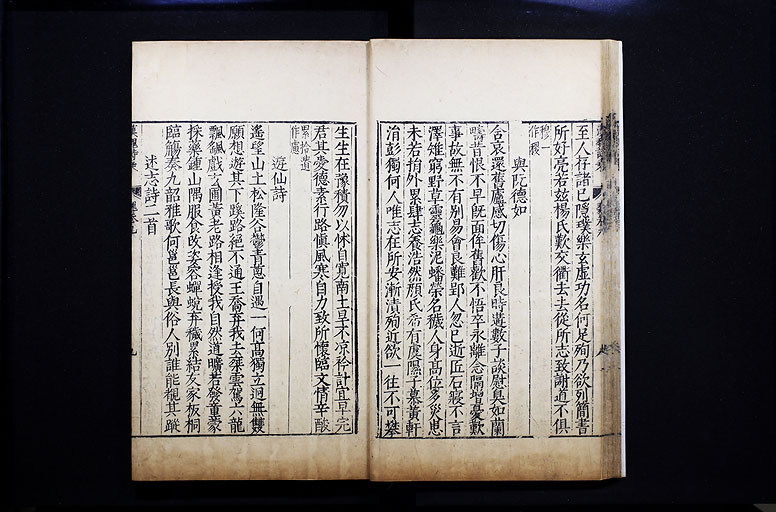 至人存諸己隱璞樂玄虛功名何足殉乃欲列簡書
所好亮若茲楊氏歎交衢去去從所志致謝道不俱
穆一
作稷
與阮德如
含哀還舊廬感切傷心肝良時遘數子談慰臭如蘭
疇昔恨不早既面侔舊歡不悟卒永離念隔增憂歎
事故無不有別易會良難郢人忽已逝匠石寢不言
澤雉窮野草靈龜樂泥蟠榮名穢人身高位多災患
未若捐外累肆志養浩然顏氏希有虞隰子慕黃軒
涓彭獨何人唯志在所安漸漬殉近欲一往不可攀
生生在豫積勿以怵自寬南土旱不凉衿計宜早完
君其愛德素行路慎風寒自力致所懷臨文情辛酸
作慮
遊仙詩
遙望山上松隆谷鬱青葱自遇一何高獨立迥無雙
願想遊其下蹊路絕不通王喬弃我去乘雲駕六龍
飄颻戲玄圃黃老路相逢授我自然道曠若發童蒙
採藥鍾山隅服食改姿容蟬蛻弃穢累結友家板桐
臨觴奏九韶雅歌何邕邕長與俗人別誰能覩其蹤
述志詩二首